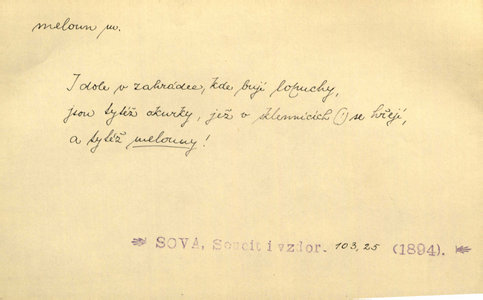 meloun m.
I dole v zahrádce, kde bují lopuchy,
jsou tytéž okurky, jež v sklennicích (!) se hřejí,
a tytéž melouny!
SOVA, Soucit i vzdor. 103,25 (1894).